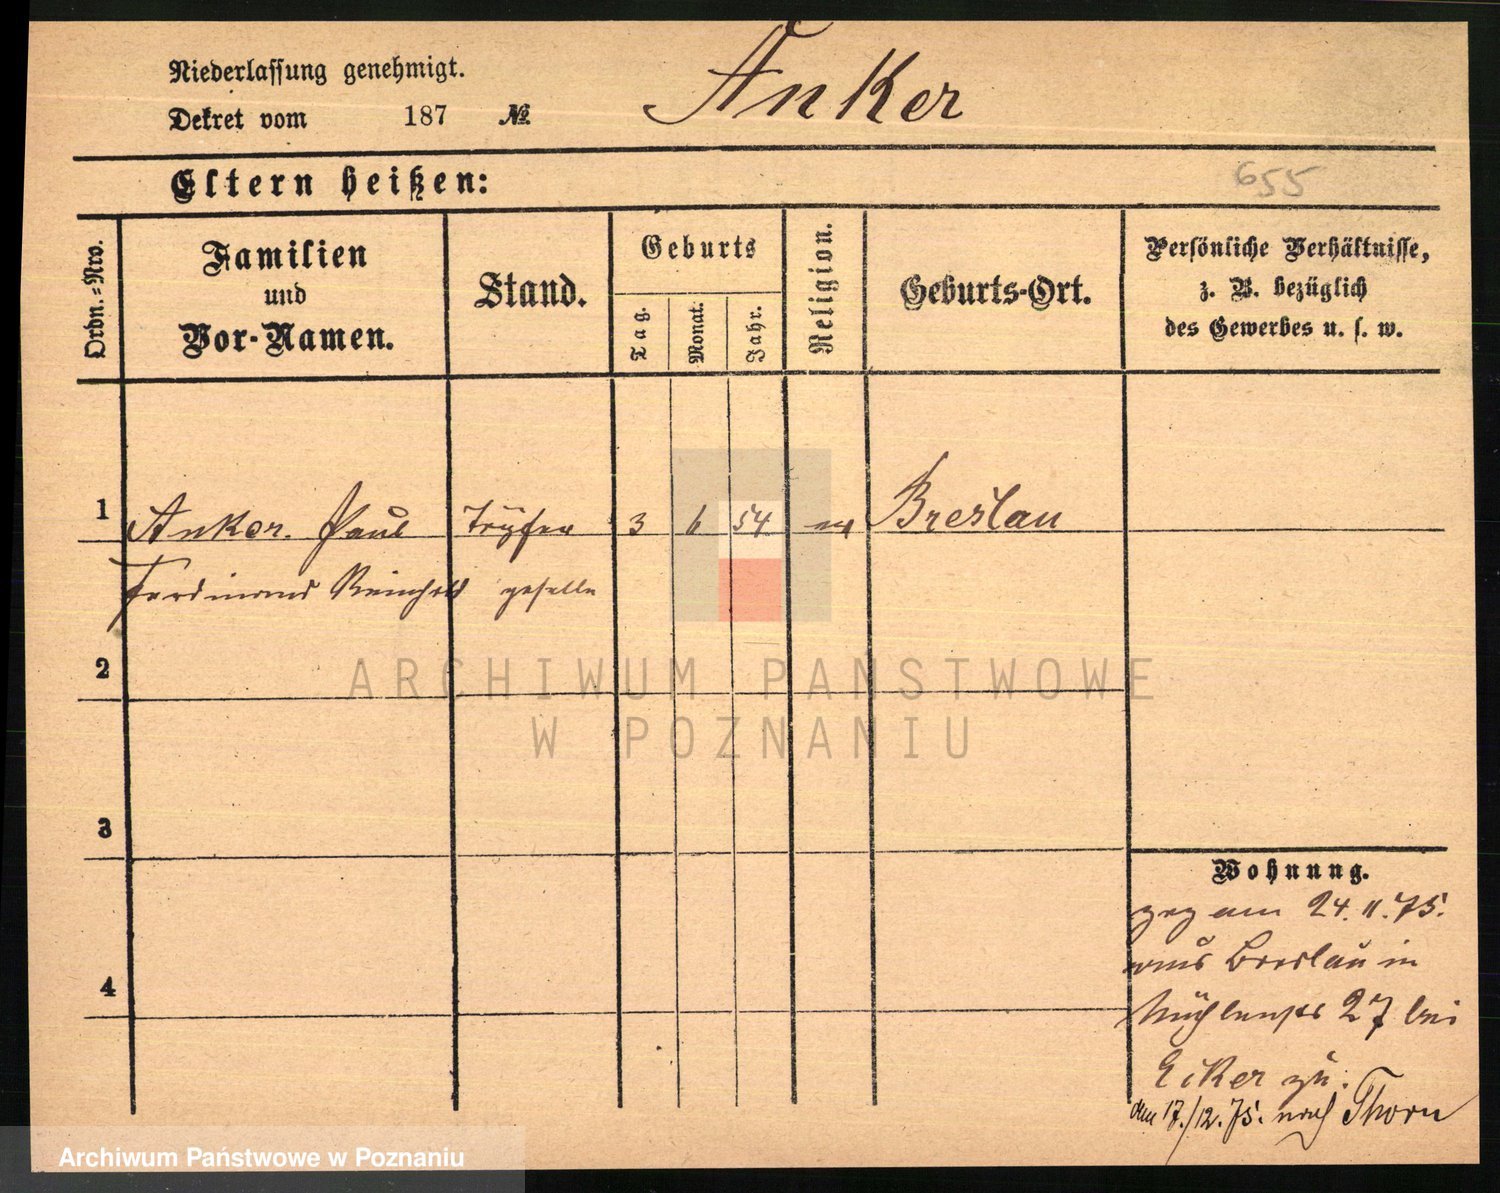 Niederlassung genehmigt.
Dekret vom 187 №
Anker
Eltern heißen:
655
Ordn.=Nro.
Familien
und
Vor-Namen.
Stand.
Geburts
Tag.
Monat.
Jahr.
Religion.
Geburts-Ort.
Persönliche Verhältnisse,
z. B. bezüglich
des Gewerbes u. s. w.
1 Anker. Paul Töpfer 3 6 54 ev Breslau
Ferdinand Reinhold geselle
2
ARCHIWUM PAŃSTWOWE
W POZNANIU
3
Wohnung.
4
am 24. 11. 75.
aus Breslau in
Mühlenstr 27 bei
Eiker zu.
den 17./12. 75. nach Thorn
Archiwum Państwowe w Poznaniu